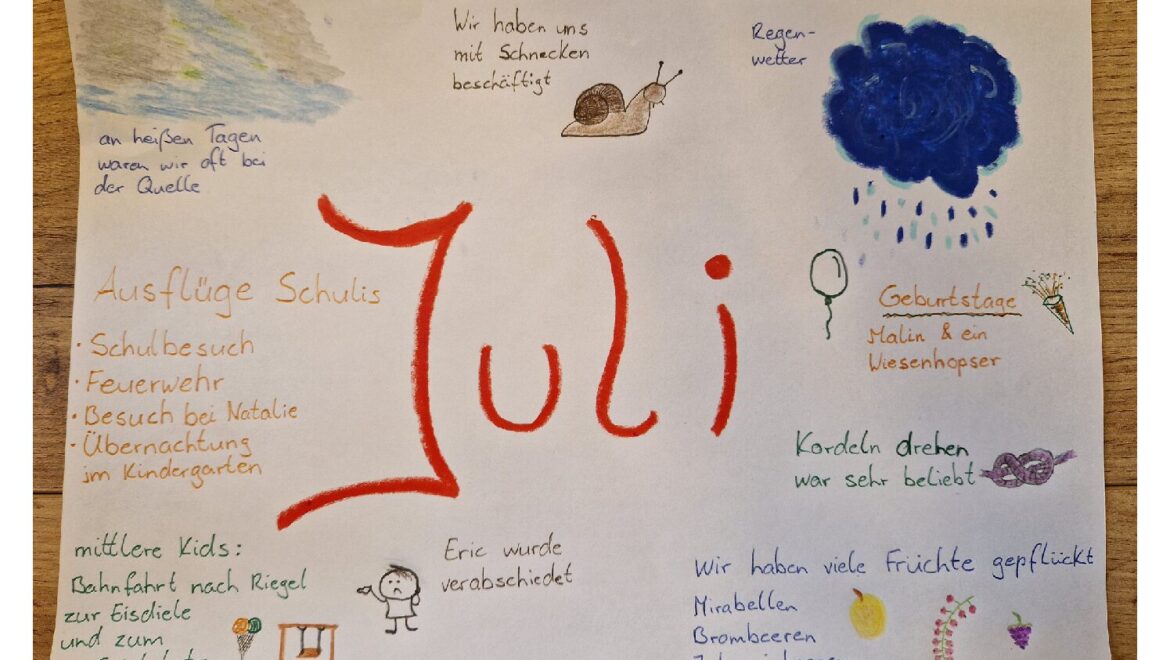 an heißen Tagen
waren wir oft bei
der Quelle
Wir haben uns
mit Schnecken
beschäftigt
Regen-
wetter
Juli
Ausflüge Schulis
· Schulbesuch
· Feuerwehr
· Besuch bei Natalie
· Übernachtung
im Kindergarten
Geburtstage
Malin & ein
Wiesenhopser
Kordeln drehen
war sehr beliebt
mittlere Kids:
Bahnfahrt nach Riegel
zur Eisdiele
und zum
Eric wurde
verabschiedet
Wir haben viele Früchte gepflückt
Mirabellen
Brombeeren